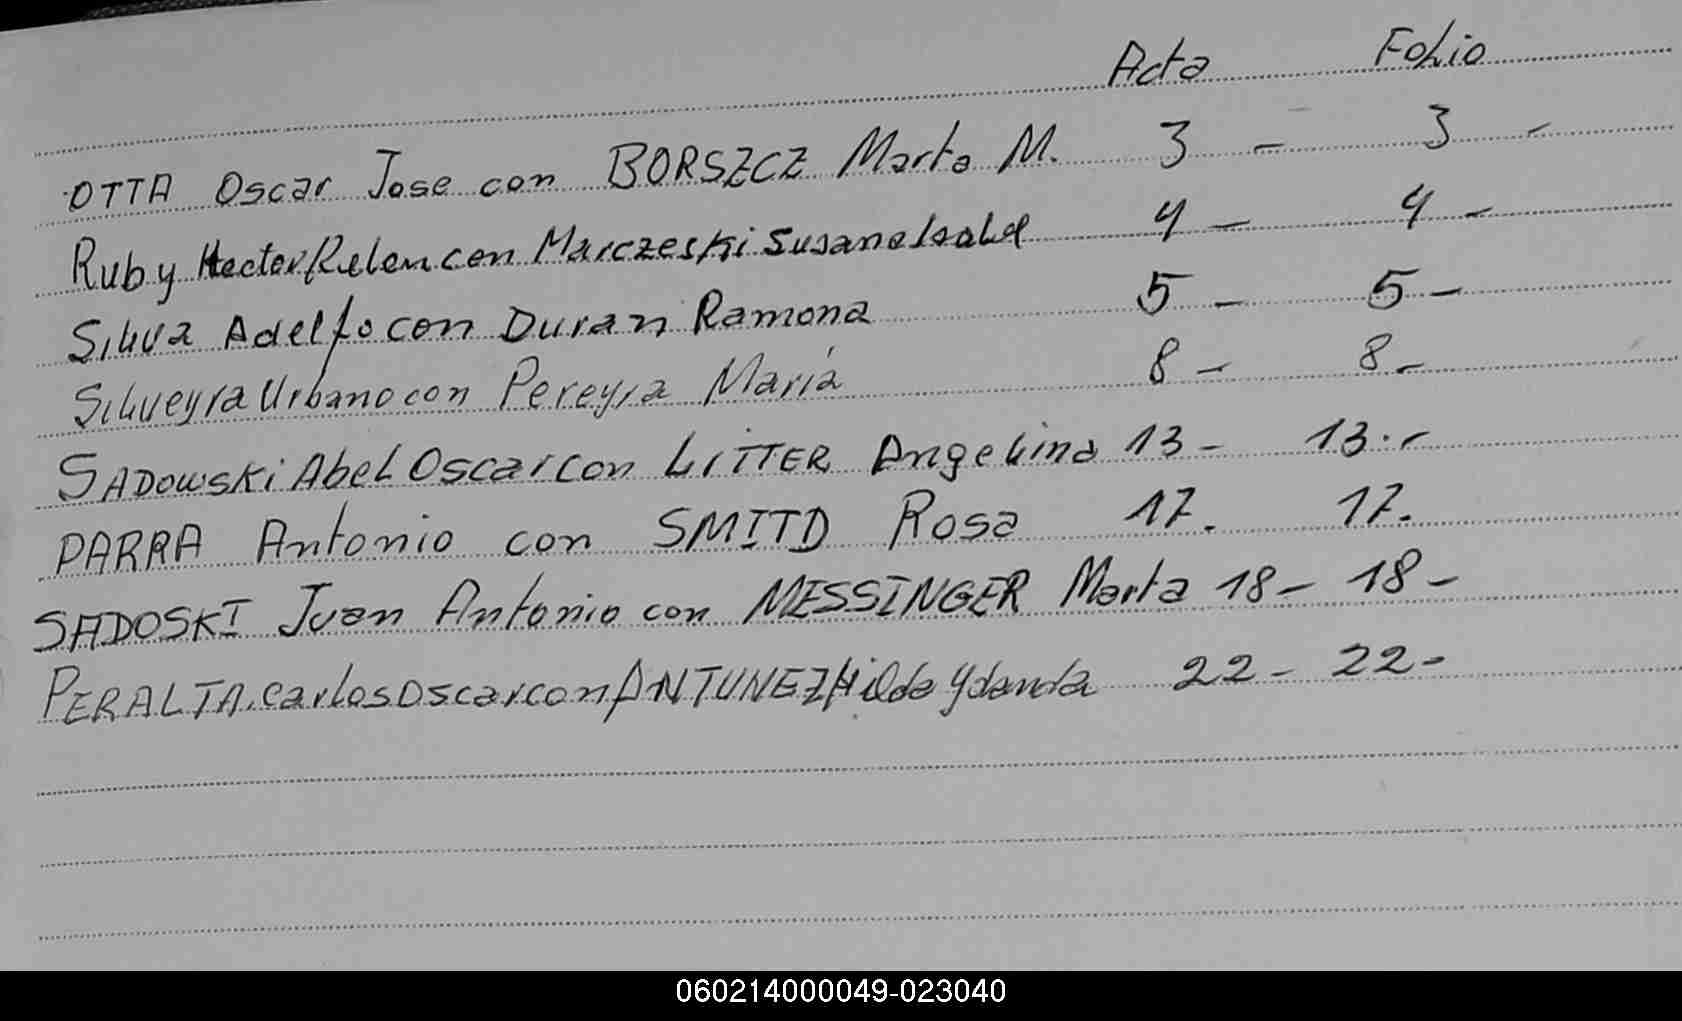 Acta Folio
OTTA Oscar Jose con BORSZCZ Marta M. 3 - 3 -
Ruby Hector Ruben con Marczeski Susana Isabel 4 - 4 -
Silva Adelfo con Duran Ramona 5 - 5 -
Silveyra Urbano con Pereyra María 8 - 8 -
SADOWSKi Abel Oscar con LiTTER Angelina 13 - 13 . -
PARRA Antonio con SMITD Rosa 17. 17.
SADOSKI Juan Antonio con MESSINGER Marta 18 - 18 -
PERALTA. Carlos Oscar con ANTUNEZ Hilda Yolanda 22 - 22 -
060214000049-023040